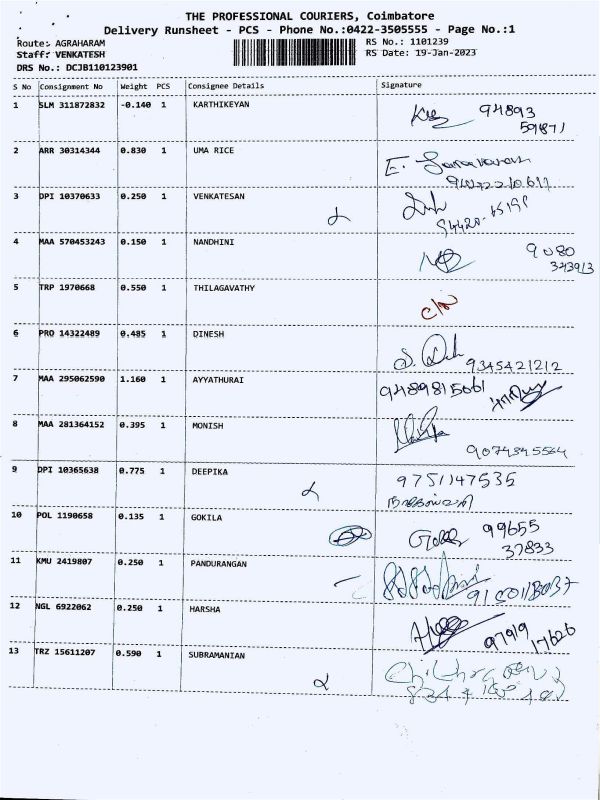 THE PROFESSIONAL COURIERS, Coimbatore
Delivery Runsheet - PCS - Phone No.:0422-3505555 - Page No.:1
Route: AGRAHARAM
RS No.: 1101239
Staff: VENKATESH
RS Date: 19-Jan-2023
DRS No.: DCJB110123901
S No Consignment No Weight PCS Consignee Details Signature
1 SLM 311872832 -0.140 1 KARTHIKEYAN 94893
59871
2 ARR 30314344 0.830 1 UMA RICE
E. Saravanan
3 DPI 10370633 0.250 1 VENKATESAN
4 MAA 570453243 0.150 1 NANDHINI 9080
343913
5 TRP 1970668 0.550 1 THILAGAVATHY
6 PRO 14322489 0.485 1 DINESH
9345421212
7 MAA 295062590 1.160 1 AYYATHURAI 9489815061
8 MAA 281364152 0.395 1 MONISH
9074345564
9 DPI 10365638 0.775 1 DEEPIKA 9751147535
10 POL 1190658 0.135 1 GOKILA 99655
37833
11 KMU 2419807 0.250 1 PANDURANGAN
12 NGL 6922062 0.250 1 HARSHA
97919
17626
13 TRZ 15611207 0.590 1 SUBRAMANIAN